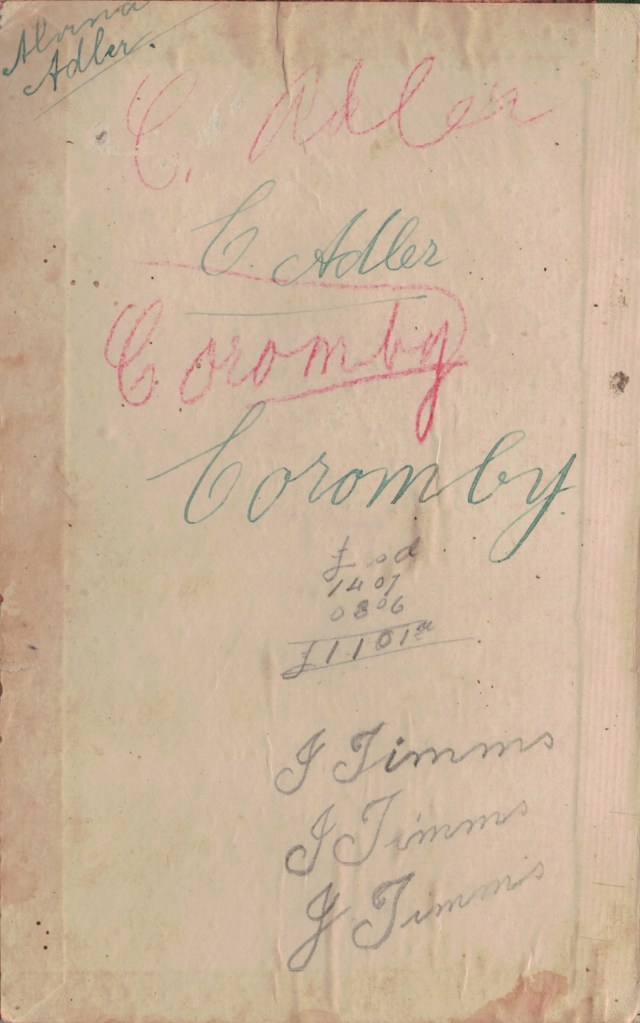 Alvina
Adler.
C. Adler
C. Adler
Coromby
Coromby
£ s d
14 0 7
0 8 0 6
£1 1 0 1
J Timms
J Timms
J Timms